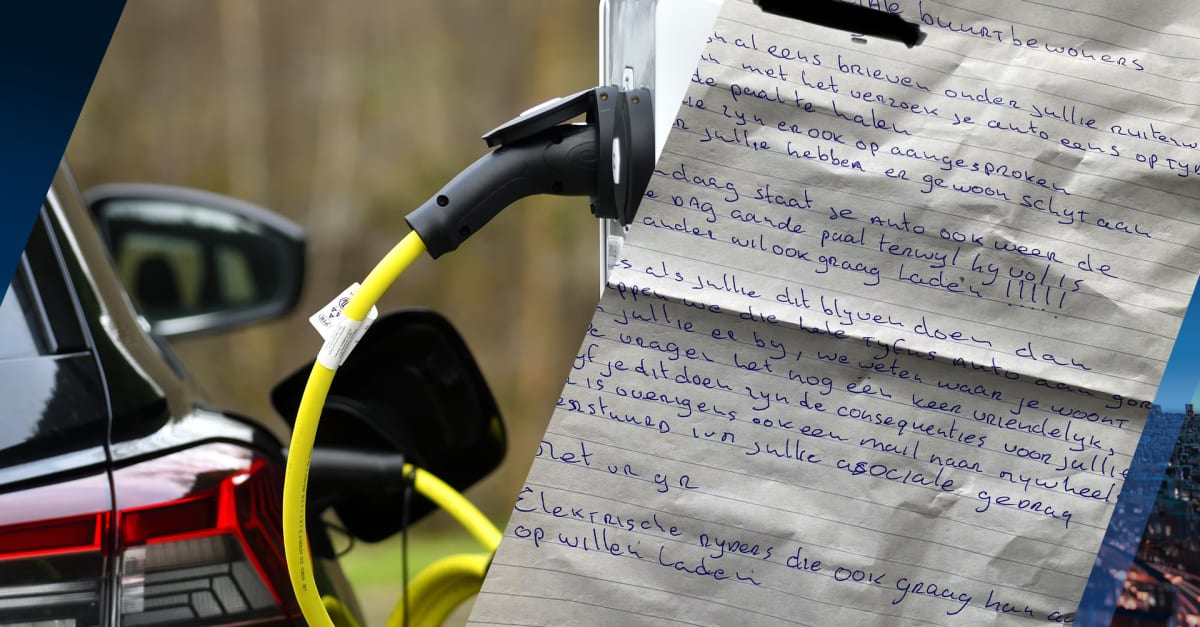 Ale buurtbewoners
maleens brieven onder jullie ruiterw
met het verzoek je auto eens op tyd
de paal te halen
ie zyn er ook op aangesproken
r jullie hebben er gewoon schyt aan
ndaag staat je auto ook weer de
e DAG aande paal terwyl hy vol is
ander wil ook graag laden !!!!!
s als jullie dit blyven doen dan
ppen we die hele tyfus auto aan gor
jullie er by, we weten waar je woont
e vragen het nog één keer vriendelyk,
yf je dit doen zyn de consequenties voor jullie
is overigens ook een mail naar mywheels
erstuurd ivm jullie asociale gedrag
Met vr gr
Elektrische ryders die ook graag hun au
op willen laden